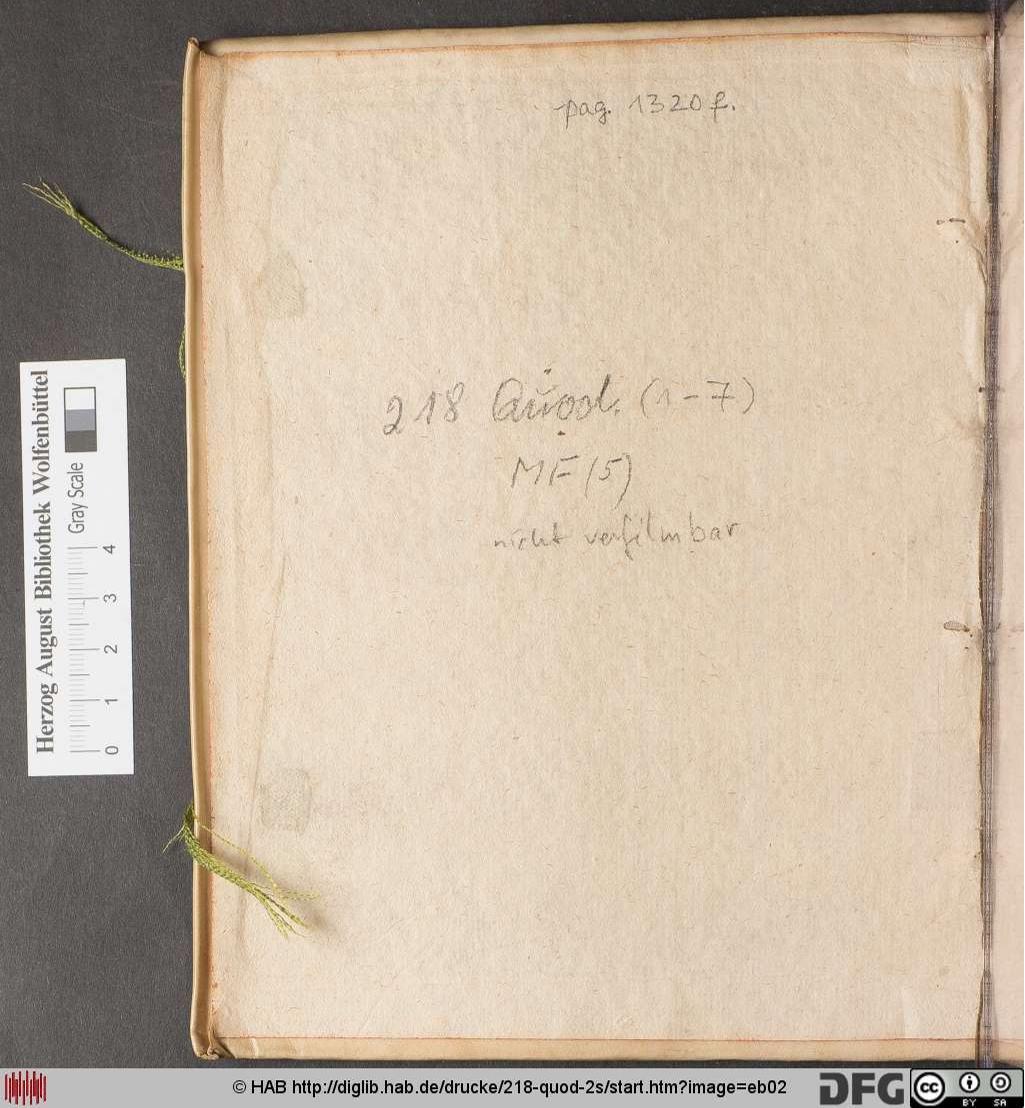 pag. 1320 f.
218 Quod. (1-7)
MF (5)
nicht verfilmbar
Herzog August Bibliothek Wolfenbüttel
Gray Scale
0 1 2 3 4
© HAB http://diglib.hab.de/drucke/218-quod-2s/start.htm?image=eb02
DFG
cc BY SA